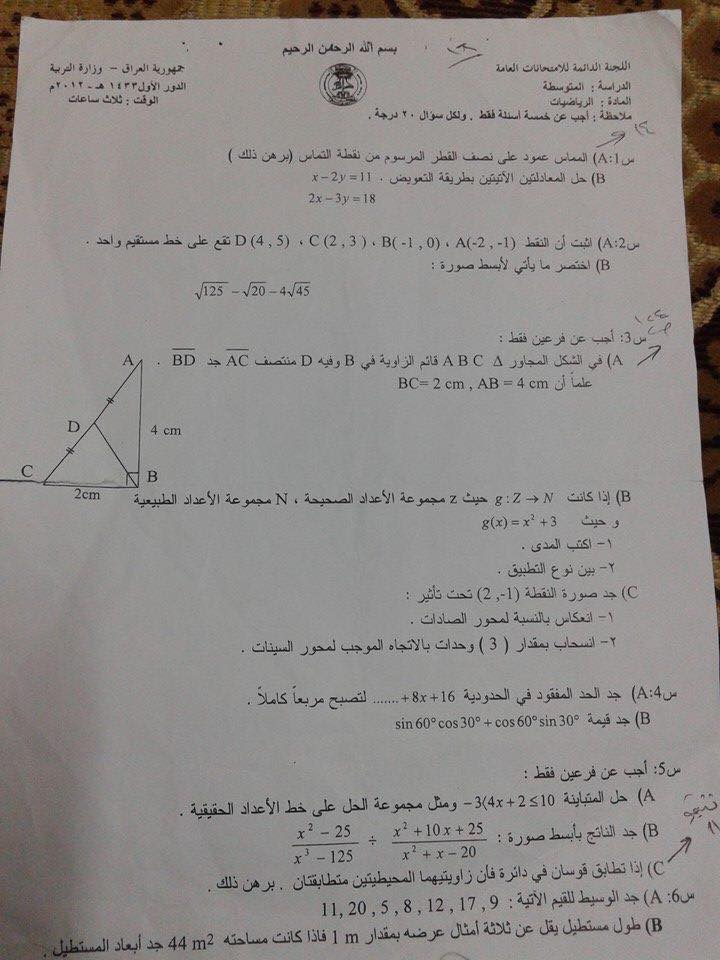 بسم الله الرحمن الرحيم
اللجنة الدائمة للامتحانات العامة
الدراسة : المتوسطة
المادة : الرياضيات
جمهورية العراق – وزارة التربية
الدور الأول ١٤٣٣ هـ - ٢٠١٢م
الوقت : ثلاث ساعات
ملاحظة : أجب عن خمسة أسئلة فقط . ولكل سؤال ٢٠ درجة .
س1: A) المماس عمود على نصف القطر المرسوم من نقطة التماس (برهن ذلك )
B) حل المعادلتين الآتيتين بطريقة التعويض . x − 2y = 11
2x − 3y = 18
س2: A) اثبت أن النقط A(-2 , -1) ، B( -1 , 0) ، C ( 2 , 3 ) ، D ( 4 , 5 ) تقع على خط مستقيم واحد .
B) اختصر ما يأتي لأبسط صورة :
√125 − √20 − 4√45
س3: أجب عن فرعين فقط :
A) في الشكل المجاور Δ A B C قائم الزاوية في B وفيه D منتصف AC جد BD .
علماً أن BC= 2 cm , AB = 4 cm
A
D
4 cm
C
B
2cm
B) إذا كانت g : Z → N حيث z مجموعة الأعداد الصحيحة ، N مجموعة الأعداد الطبيعية
و حيث g(x) = x² + 3
١- اكتب المدى .
٢- بين نوع التطبيق .
C) جد صورة النقطة (2 ,-1) تحت تأثير :
١- انعكاس بالنسبة لمحور الصادات .
٢- انسحاب بمقدار ( 3 ) وحدات بالاتجاه الموجب لمحور السينات .
س4: A) جد الحد المفقود في الحدودية ....... + 8x + 16 لتصبح مربعاً كاملاً .
B) جد قيمة sin 60° cos 30° + cos 60° sin 30°
س5: أجب عن فرعين فقط :
A) حل المتباينة −3⟨4x + 2 ≤ 10 ومثل مجموعة الحل على خط الأعداد الحقيقية .
B) جد الناتج بأبسط صورة : (x² − 25)/(x³ − 125) ÷ (x² + 10x + 25)/(x² + x − 20)
C) إذا تطابق قوسان في دائرة فأن زاويتيهما المحيطيتين متطابقتان . برهن ذلك .
س6: A) جد الوسيط للقيم الآتية : 11, 20 , 5 , 8 , 12 , 17 , 9
B) طول مستطيل يقل عن ثلاثة أمثال عرضه بمقدار 1 m فاذا كانت مساحته 44 m² جد أبعاد المستطيل .